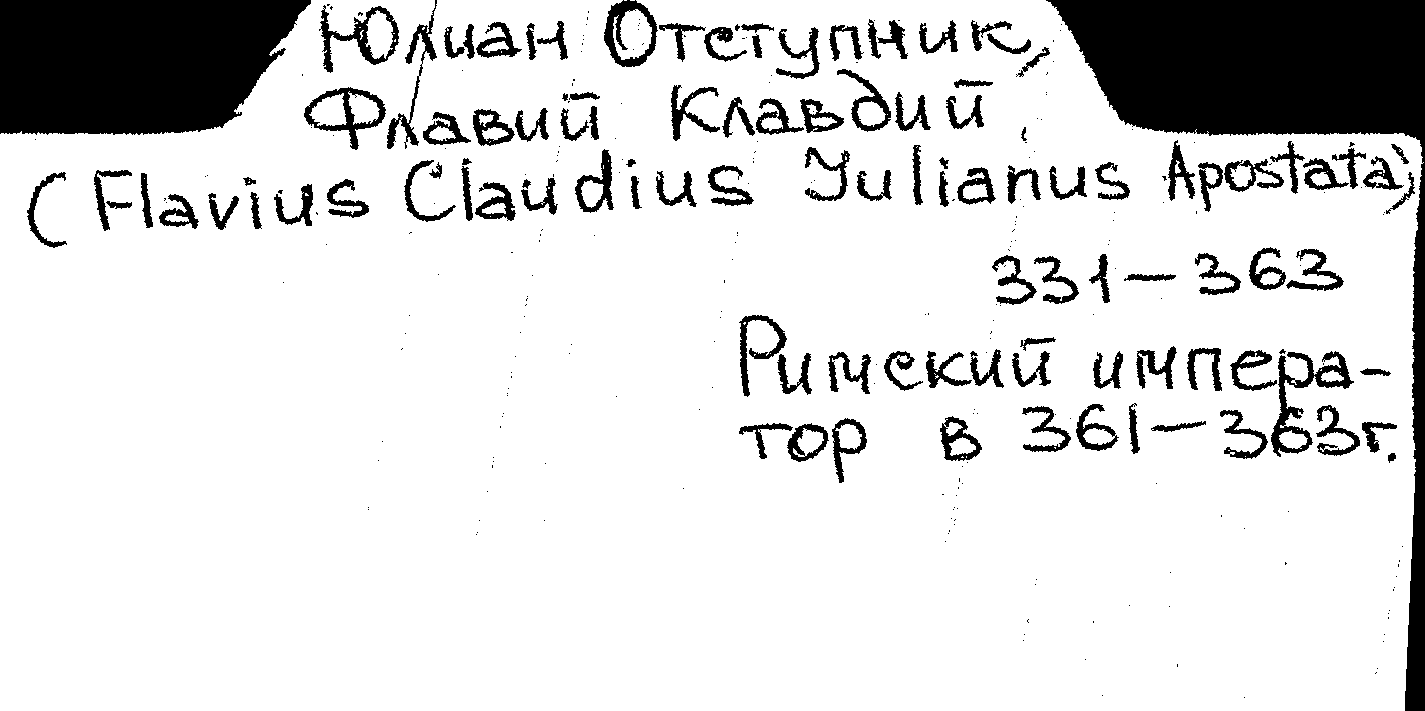 Юлиан Отступник,
Флавий Клавдий
(Flavius Claudius Yulianus Apostata)
331—363
Римский импера-
тор в 361—363г.